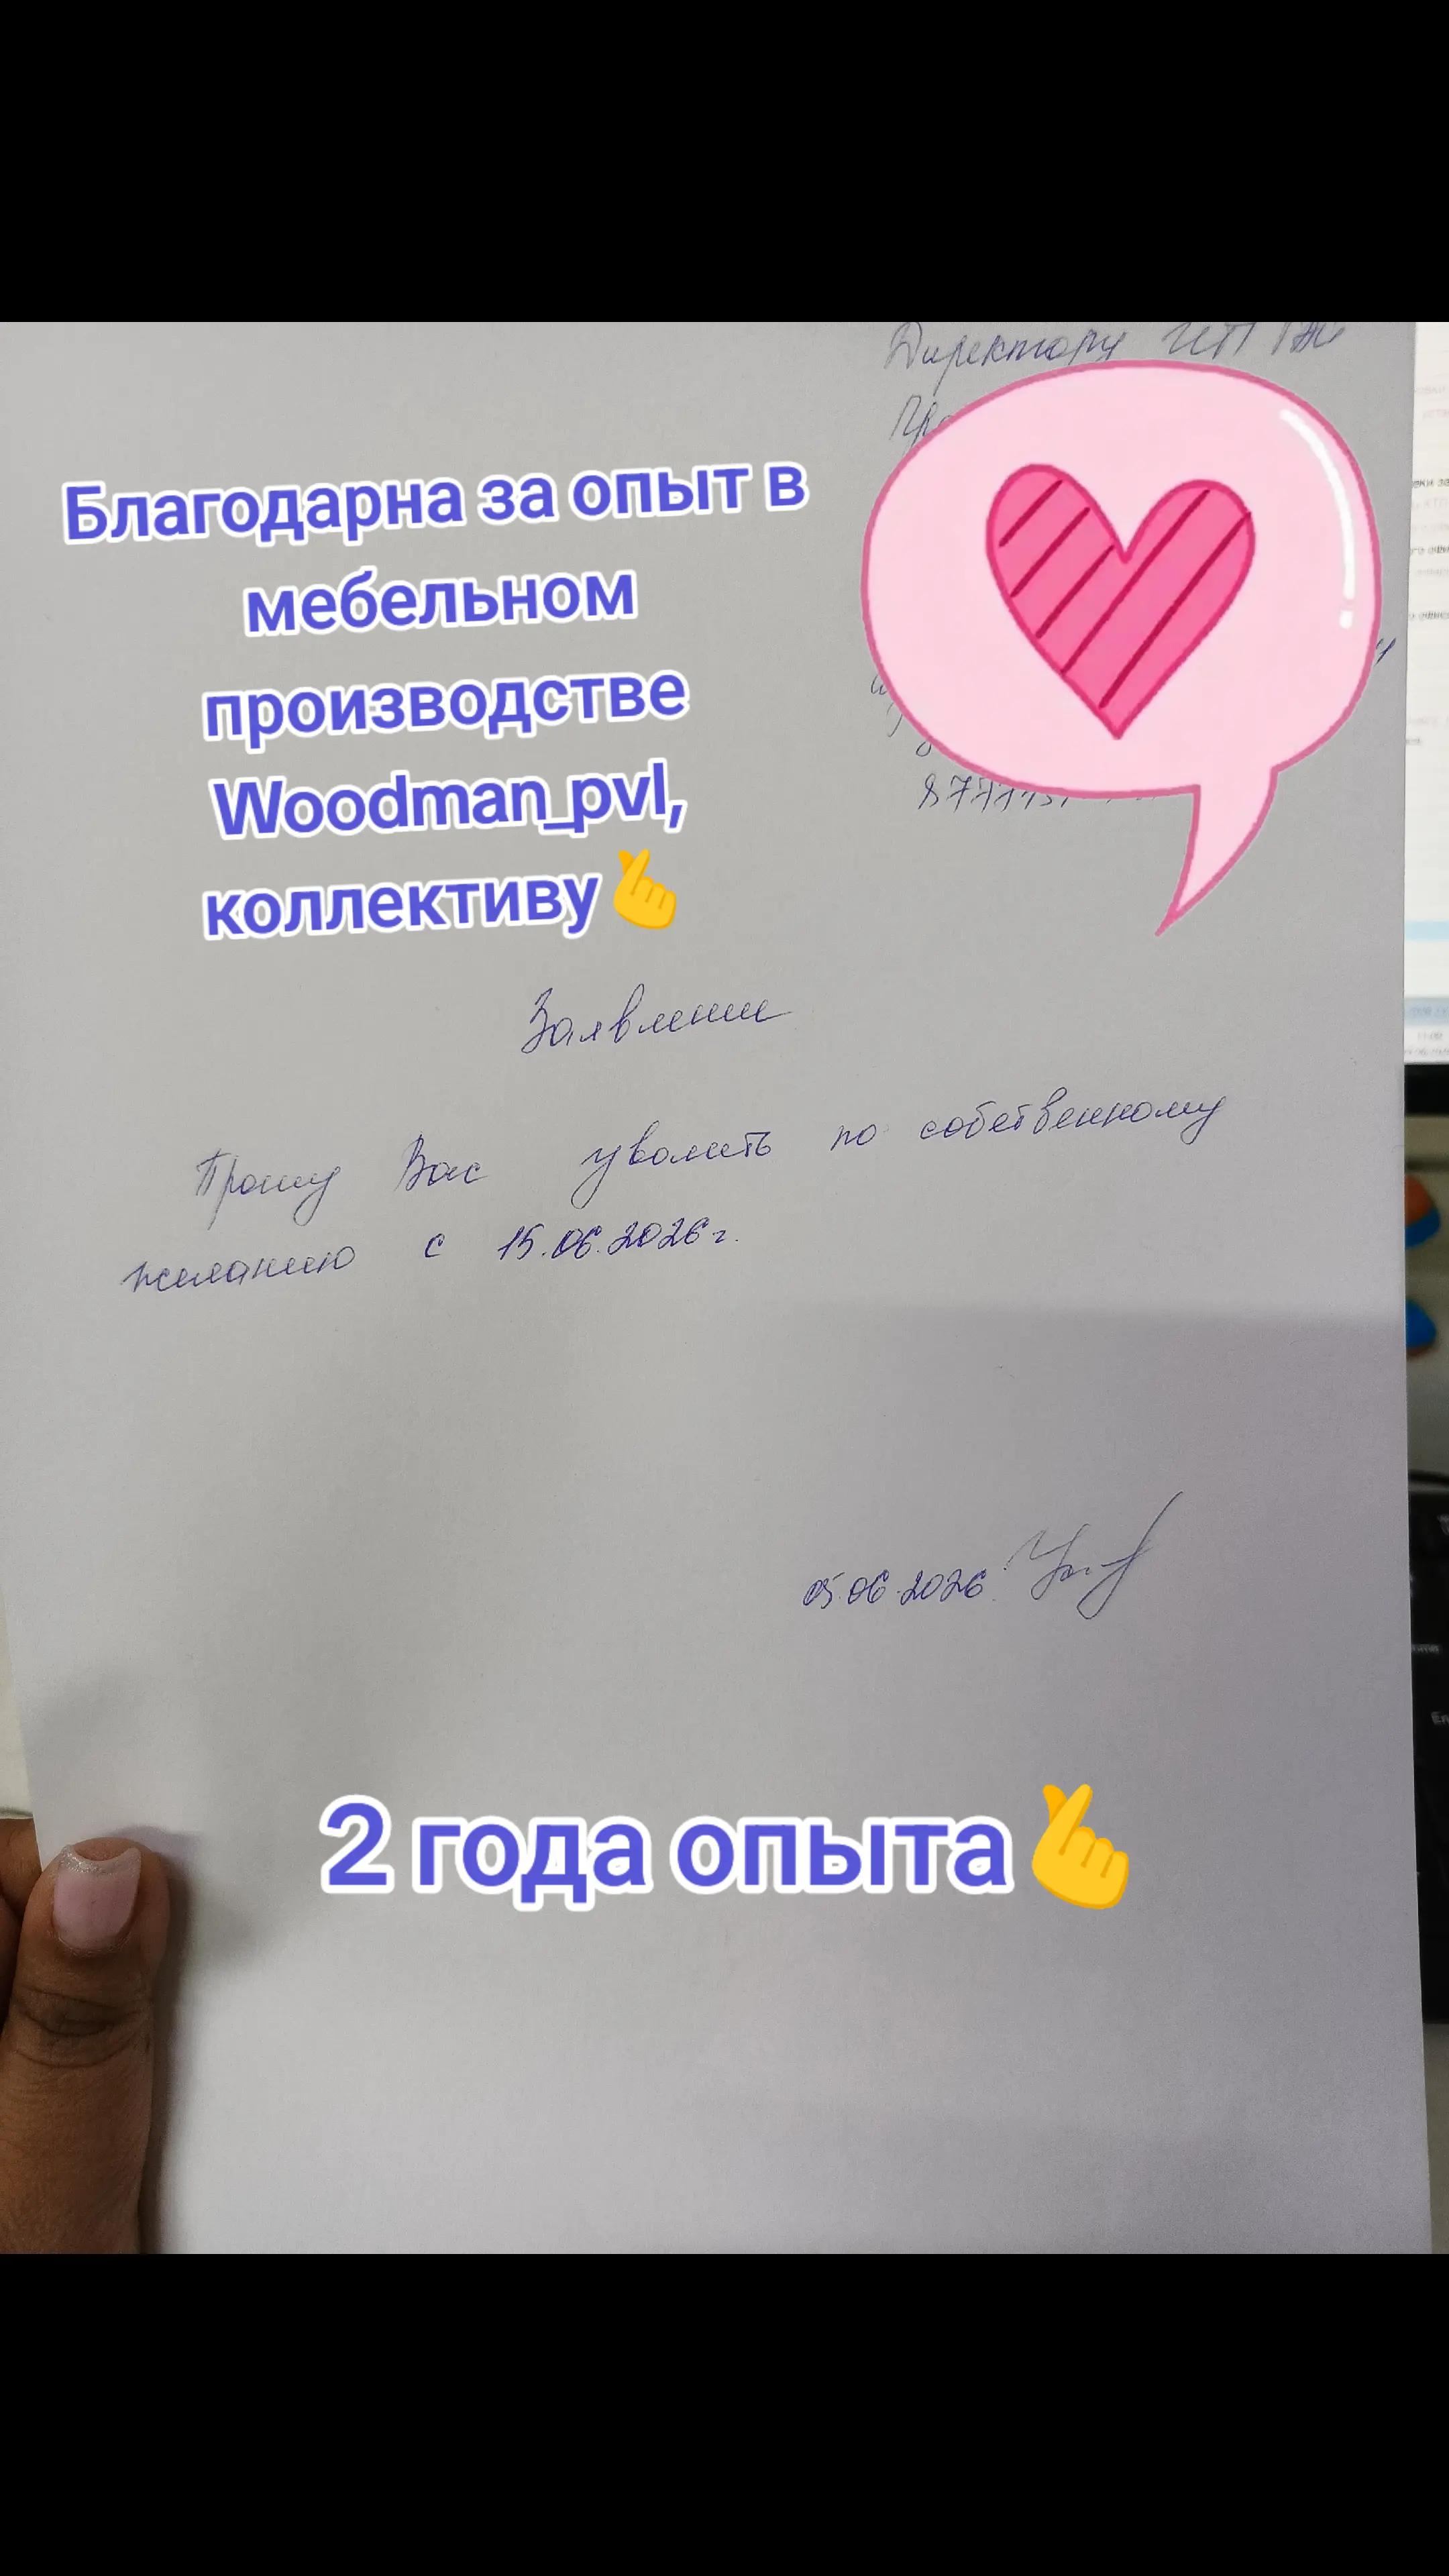 Директору ИП
Благодарна за опыт в
мебельном
производстве
Woodman_pvl,
коллективу🫰
Заявление
Прошу Вас уволить по собственному
желанию с 15.06.2026г.
05.06.2026.
2 года опыта🫰